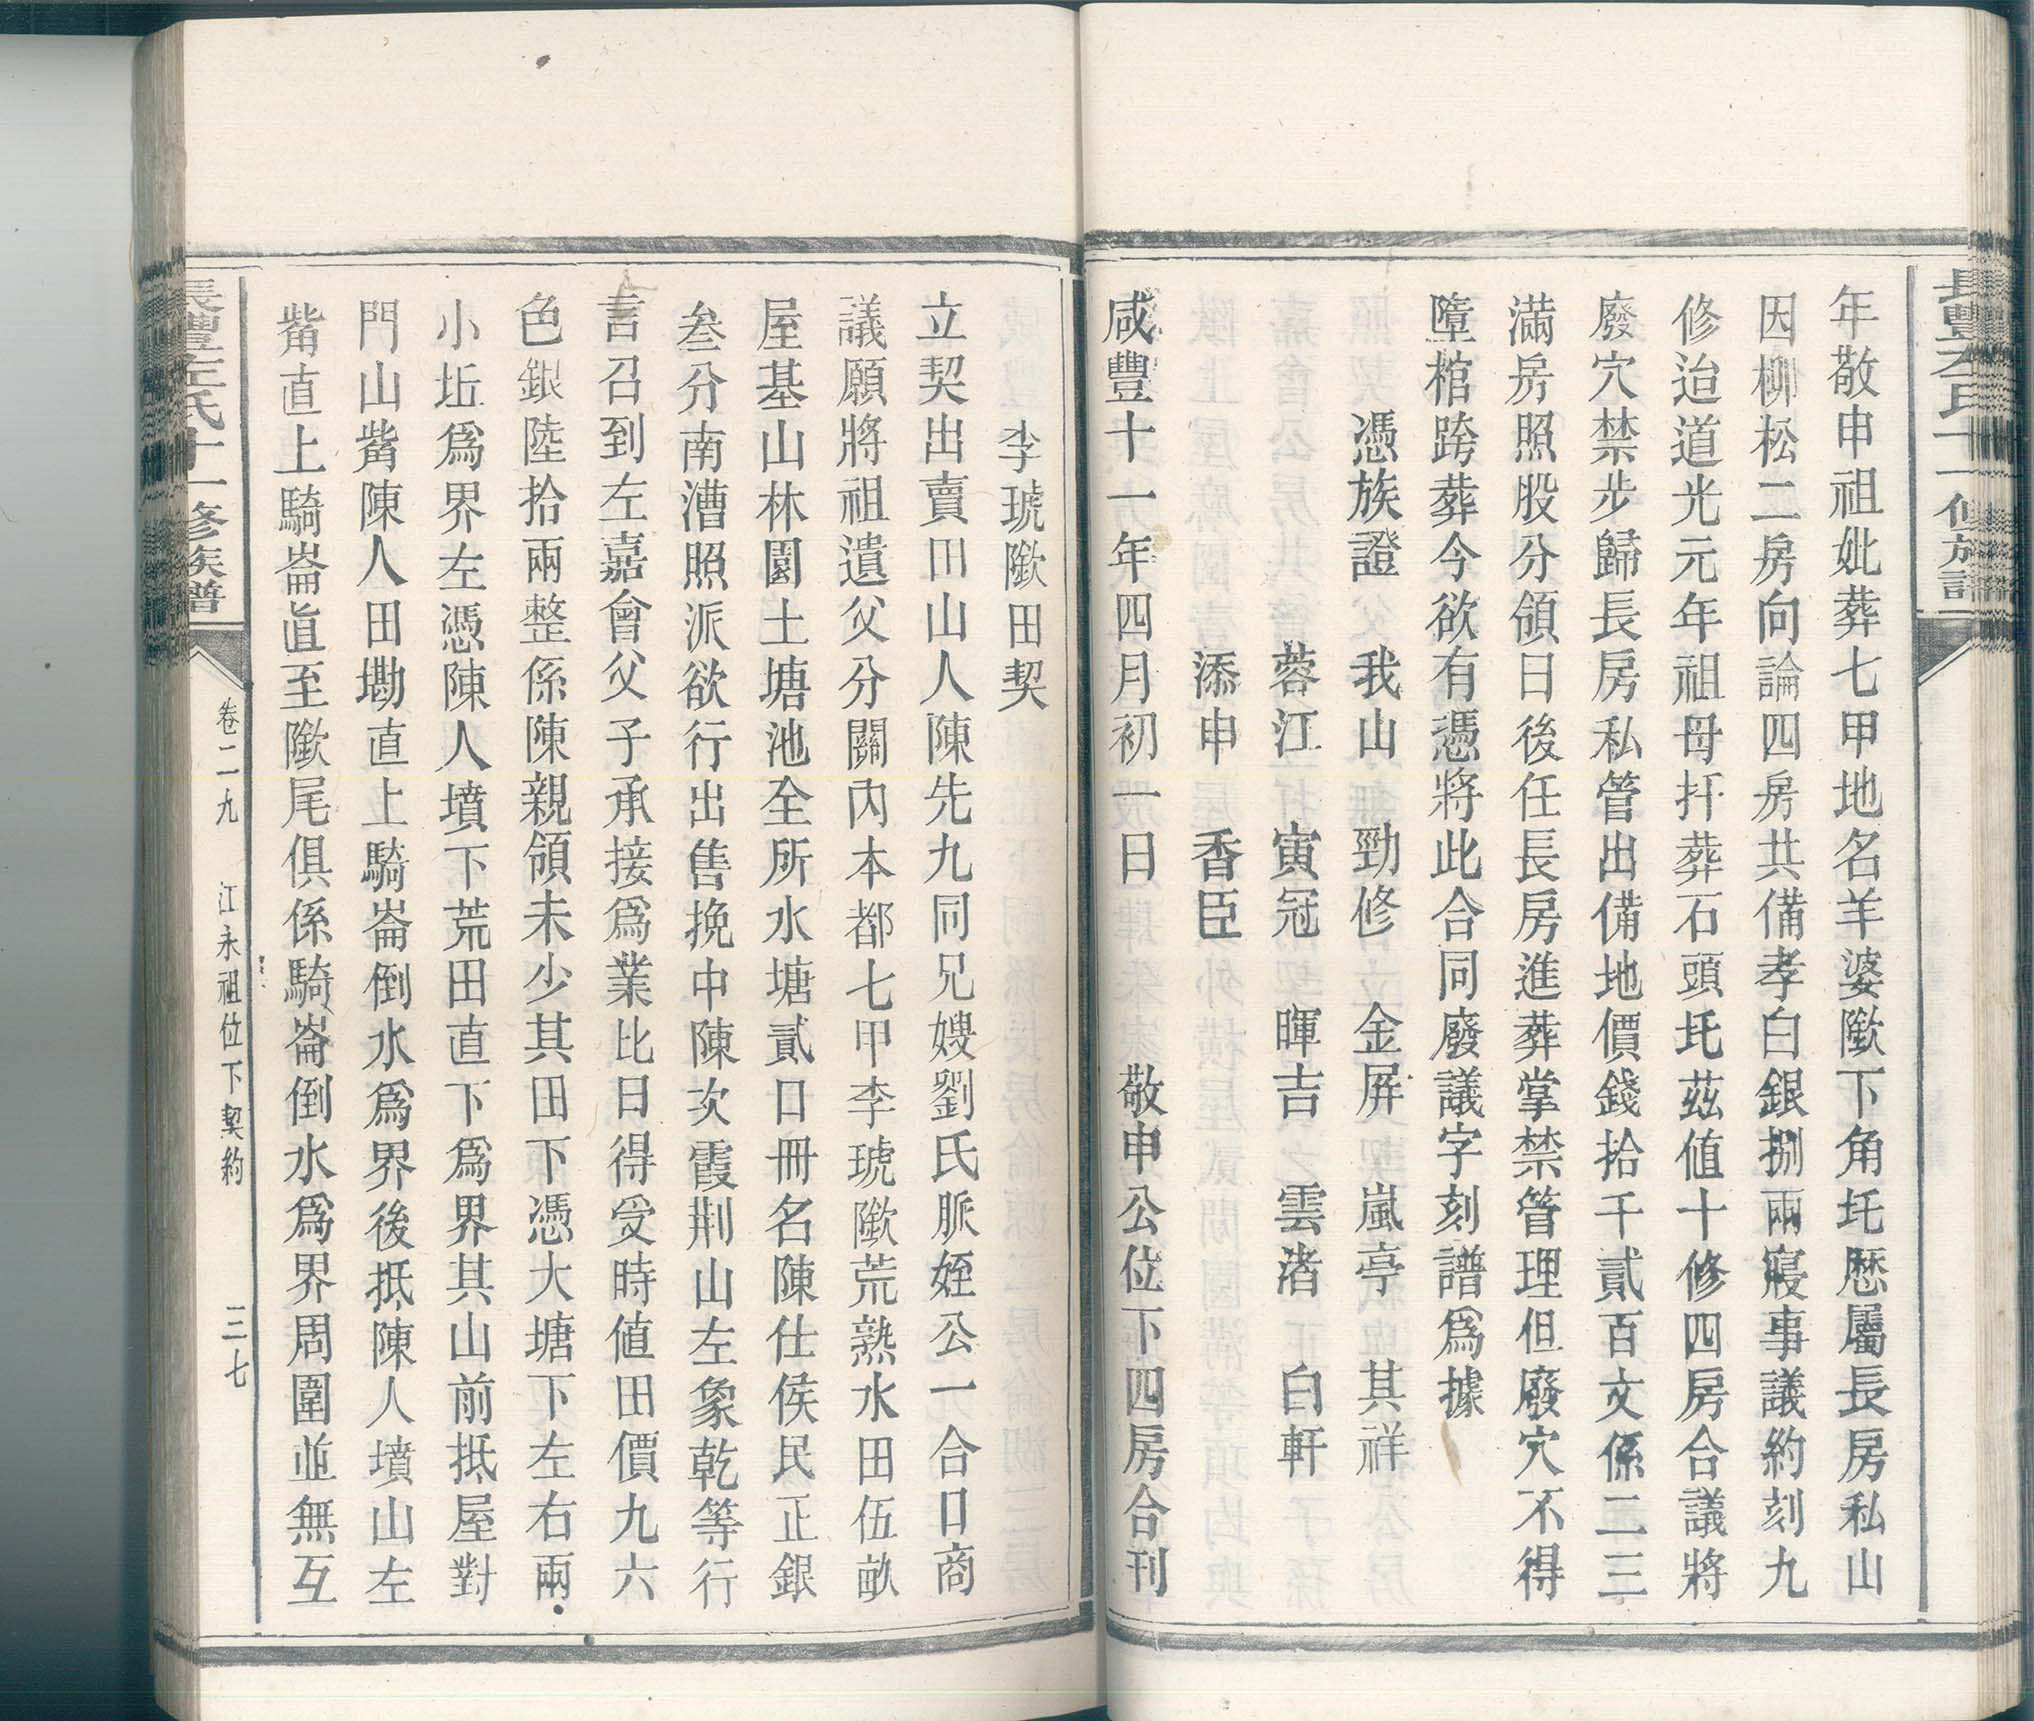 長豐左氏十一修族譜
年敬申祖妣葬七甲地名羊婆隞下角圫歷屬長房私山
因柳松二房向論四房共備孝白銀捌兩寢事議約刻九
修迨道光元年祖母扞葬石頭圫茲值十修四房合議將
廢穴禁步歸長房私管出備地價錢拾千貳百文係二三
滿房照股分領日後任長房進葬掌禁管理但廢穴不得
墮棺跨葬今欲有憑將此合同廢議字刻譜爲據
憑族證　我山　勁修　金屏　嵐亭　其祥
蓉江　寅冠　暉吉　雲渚　白軒
添申　香臣
咸豐十一年四月初一日　敬申公位下四房合刊
李琥隞田契
立契出賣田山人陳先九同兄嫂劉氏脈姪公一合口商
議願將祖遺父分關內本都七甲李琥隞荒熟水田伍畝
屋基山林園土塘池全所水塘貳口冊名陳仕侯民正銀
叁分南漕照派欲行出售挽中陳次霞荆山左象乾等行
言召到左嘉會父子承接爲業比日得受時値田價九六
色銀陸拾兩整係陳親領未少其田下憑大塘下左右兩
小坵爲界左憑陳人墳下荒田直下爲界其山前抵屋對
門山觜陳人田墈直上騎崙倒水爲界後抵陳人墳山左
觜直上騎崙直至隞尾俱係騎崙倒水爲界周圍並無互
長豐左氏十一修族譜
卷二九　江永祖位下契約　三七